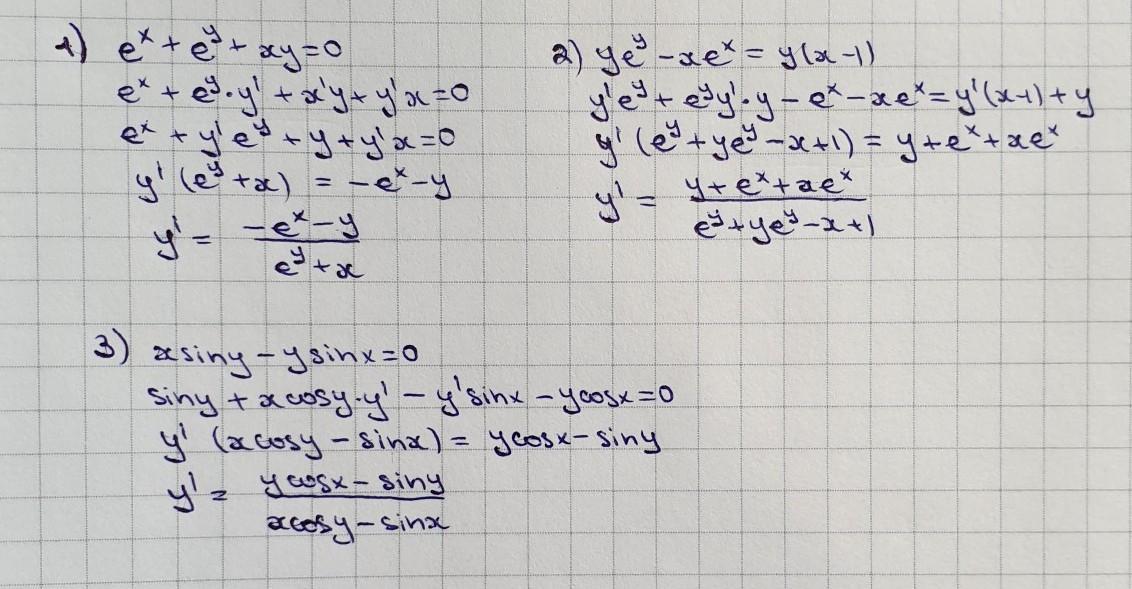 1) eˣ + eʸ + xy = 0
eˣ + eʸ · y' + x'y + y'x = 0
eˣ + y'eʸ + y + y'x = 0
y' (eʸ + x) = -eˣ - y
y' = (-eˣ - y) / (eʸ + x)
2) yeʸ - xeˣ = y(x - 1)
y'eʸ + eʸy' · y - eˣ - xeˣ = y'(x-1) + y
y' (eʸ + yeʸ - x + 1) = y + eˣ + xeˣ
y' = (y + eˣ + xeˣ) / (eʸ + yeʸ - x + 1)
3) x sin y - y sin x = 0
sin y + x cos y · y' - y' sin x - y cos x = 0
y' (x cos y - sin x) = y cos x - sin y
y' = (y cos x - sin y) / (x cos y - sin x)